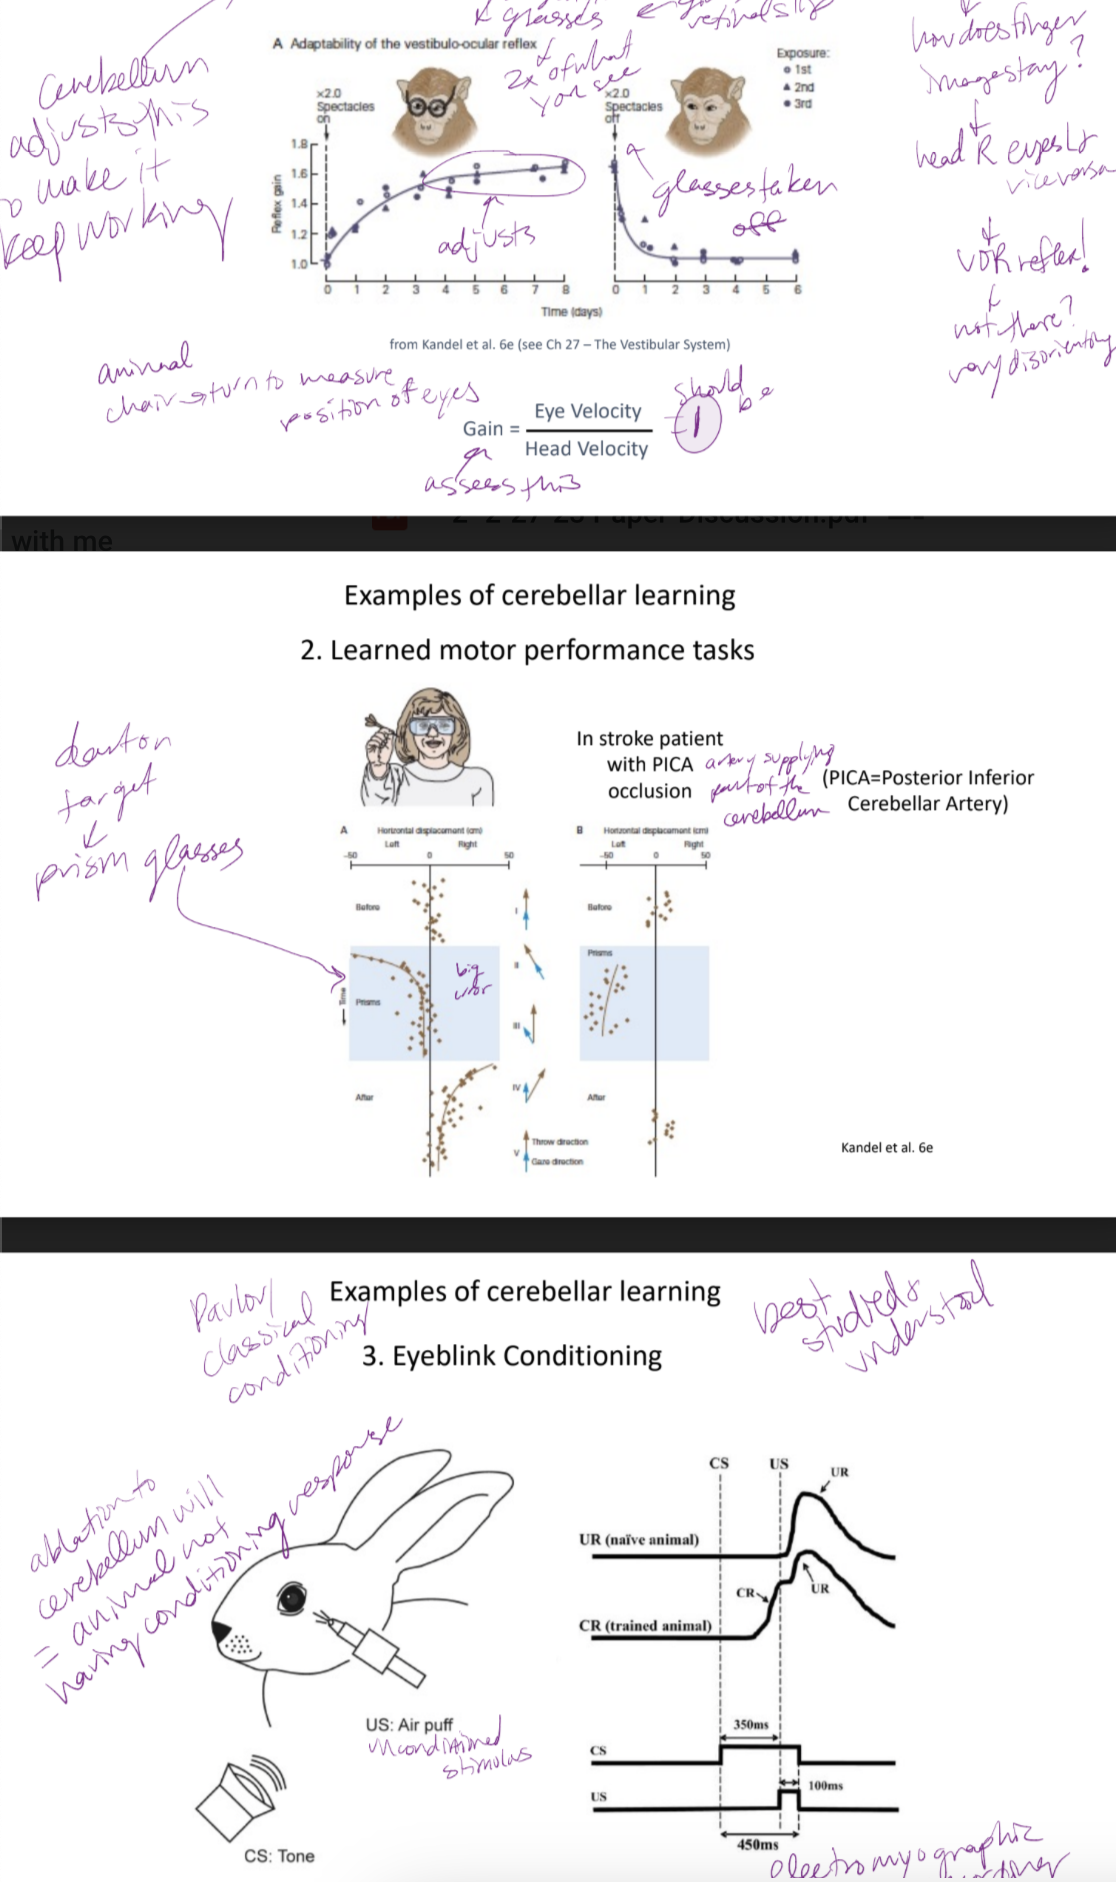 glasses ← retinal slip
2x of what
you see
A Adaptability of the vestibulo-ocular reflex
Exposure:
1st
2nd
3rd
x2.0
Spectacles
on
x2.0
Spectacles
off
Cerebellum
adjusts this
to make it
keep working
how does finger
image stay?
head R eyes L
vice versa
VOR reflex!
not there?
very disorienting
Reflex gain
1.8
1.6
1.4
1.2
1.0
adjusts
glasses taken
off
0 1 2 3 4 5 6 7 8
0 1 2 3 4 5 6
Time (days)
from Kandel et al. 6e (see Ch 27 – The Vestibular System)
animal
chair → turn to measure
position of eyes
Gain = Eye Velocity
Head Velocity
should
be
1
assess this
with me
Examples of cerebellar learning
2. Learned motor performance tasks
dart on
target
prism glasses
In stroke patient
with PICA
occlusion
artery supplying
part of the
cerebellum
(PICA=Posterior Inferior
Cerebellar Artery)
A Horizontal displacement (cm)
Left Right
-50 0 50
B Horizontal displacement (cm)
Left Right
-50 0 50
Before
I
Before
Prisms
big
II
Time
Prisms
III
After
IV
After
V
Throw direction
Gaze direction
Kandel et al. 6e
Examples of cerebellar learning
3. Eyeblink Conditioning
Pavlov/
classical
conditioning
best
studied &
understood
ablation to
cerebellum will
= animal not
having conditioning response
CS US
UR
UR (naïve animal)
CR
UR
CR (trained animal)
350ms
CS
100ms
US
450ms
US: Air puff
unconditioned
stimulus
CS: Tone
electromyographic